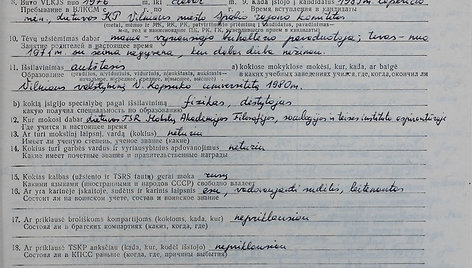 8. Buvo VLKJS nuo 1976 m. iki 9. Kada įstojo į kandidatus 1985 m.
Пребывание в ВЛКСМ с по Время вступления в кандидаты
Lietuvos KP Vilniaus miesto Spalio rajono komitetas
10. Tėvų užsiėmimas dabar mama - vyresnioji buhalterė, pavaduotoja; tėvas - nuo
Занятие родителей в настоящее время
1971 m. su šeima negyvena, kur dabar dirba nežinau.
11. Išsilavinimas aukštasis a) kokiose mokyklose mokėsi, kur, kada, ar baigė
Образование в каких учебных заведениях учился, где, когда, окончил ли
Vilniaus valstybinį V. Kapsuko universitetą 1980 m.
b) kokią įgijo specialybę pagal išsilavinimą fizikas, dėstytojas
какую получил специальность по образованию
12. Kur mokosi dabar Lietuvos TSR Mokslų Akademijos Filosofijos, sociologijos ir teisės instituto aspirantūroje
Где учится в настоящее время
13. Ar turi mokslinį laipsnį, vardą (kokius) neturiu
Имеет ли ученую степень, ученое звание (какие)
14. Kokius turi garbės vardus ir vyriausybinius apdovanojimus neturiu
Какие имеет почетные звания и правительственные награды
15. Kokias kalbas (užsienio ir TSRS tautų) gerai moka rusų
Какими языками (иностранными и народов СССР) свободно владеет
16. Ar yra karinėje įskaitoje, sudėtis ir karinis laipsnis esu, vadovaujanti sudėtis, leitenantas
Состоит ли на воинском учете, состав и воинское звание
17. Ar priklausė broliškoms kompartijoms (kokioms, kada, kur) nepriklausiau
Состоял ли в братских компартиях (каких, когда, где)
18. Ar priklausė TSKP anksčiau (kada, kur, kodėl išstojo) nepriklausiau
Состоял ли в КПСС раньше (когда, где, причины выбытия)